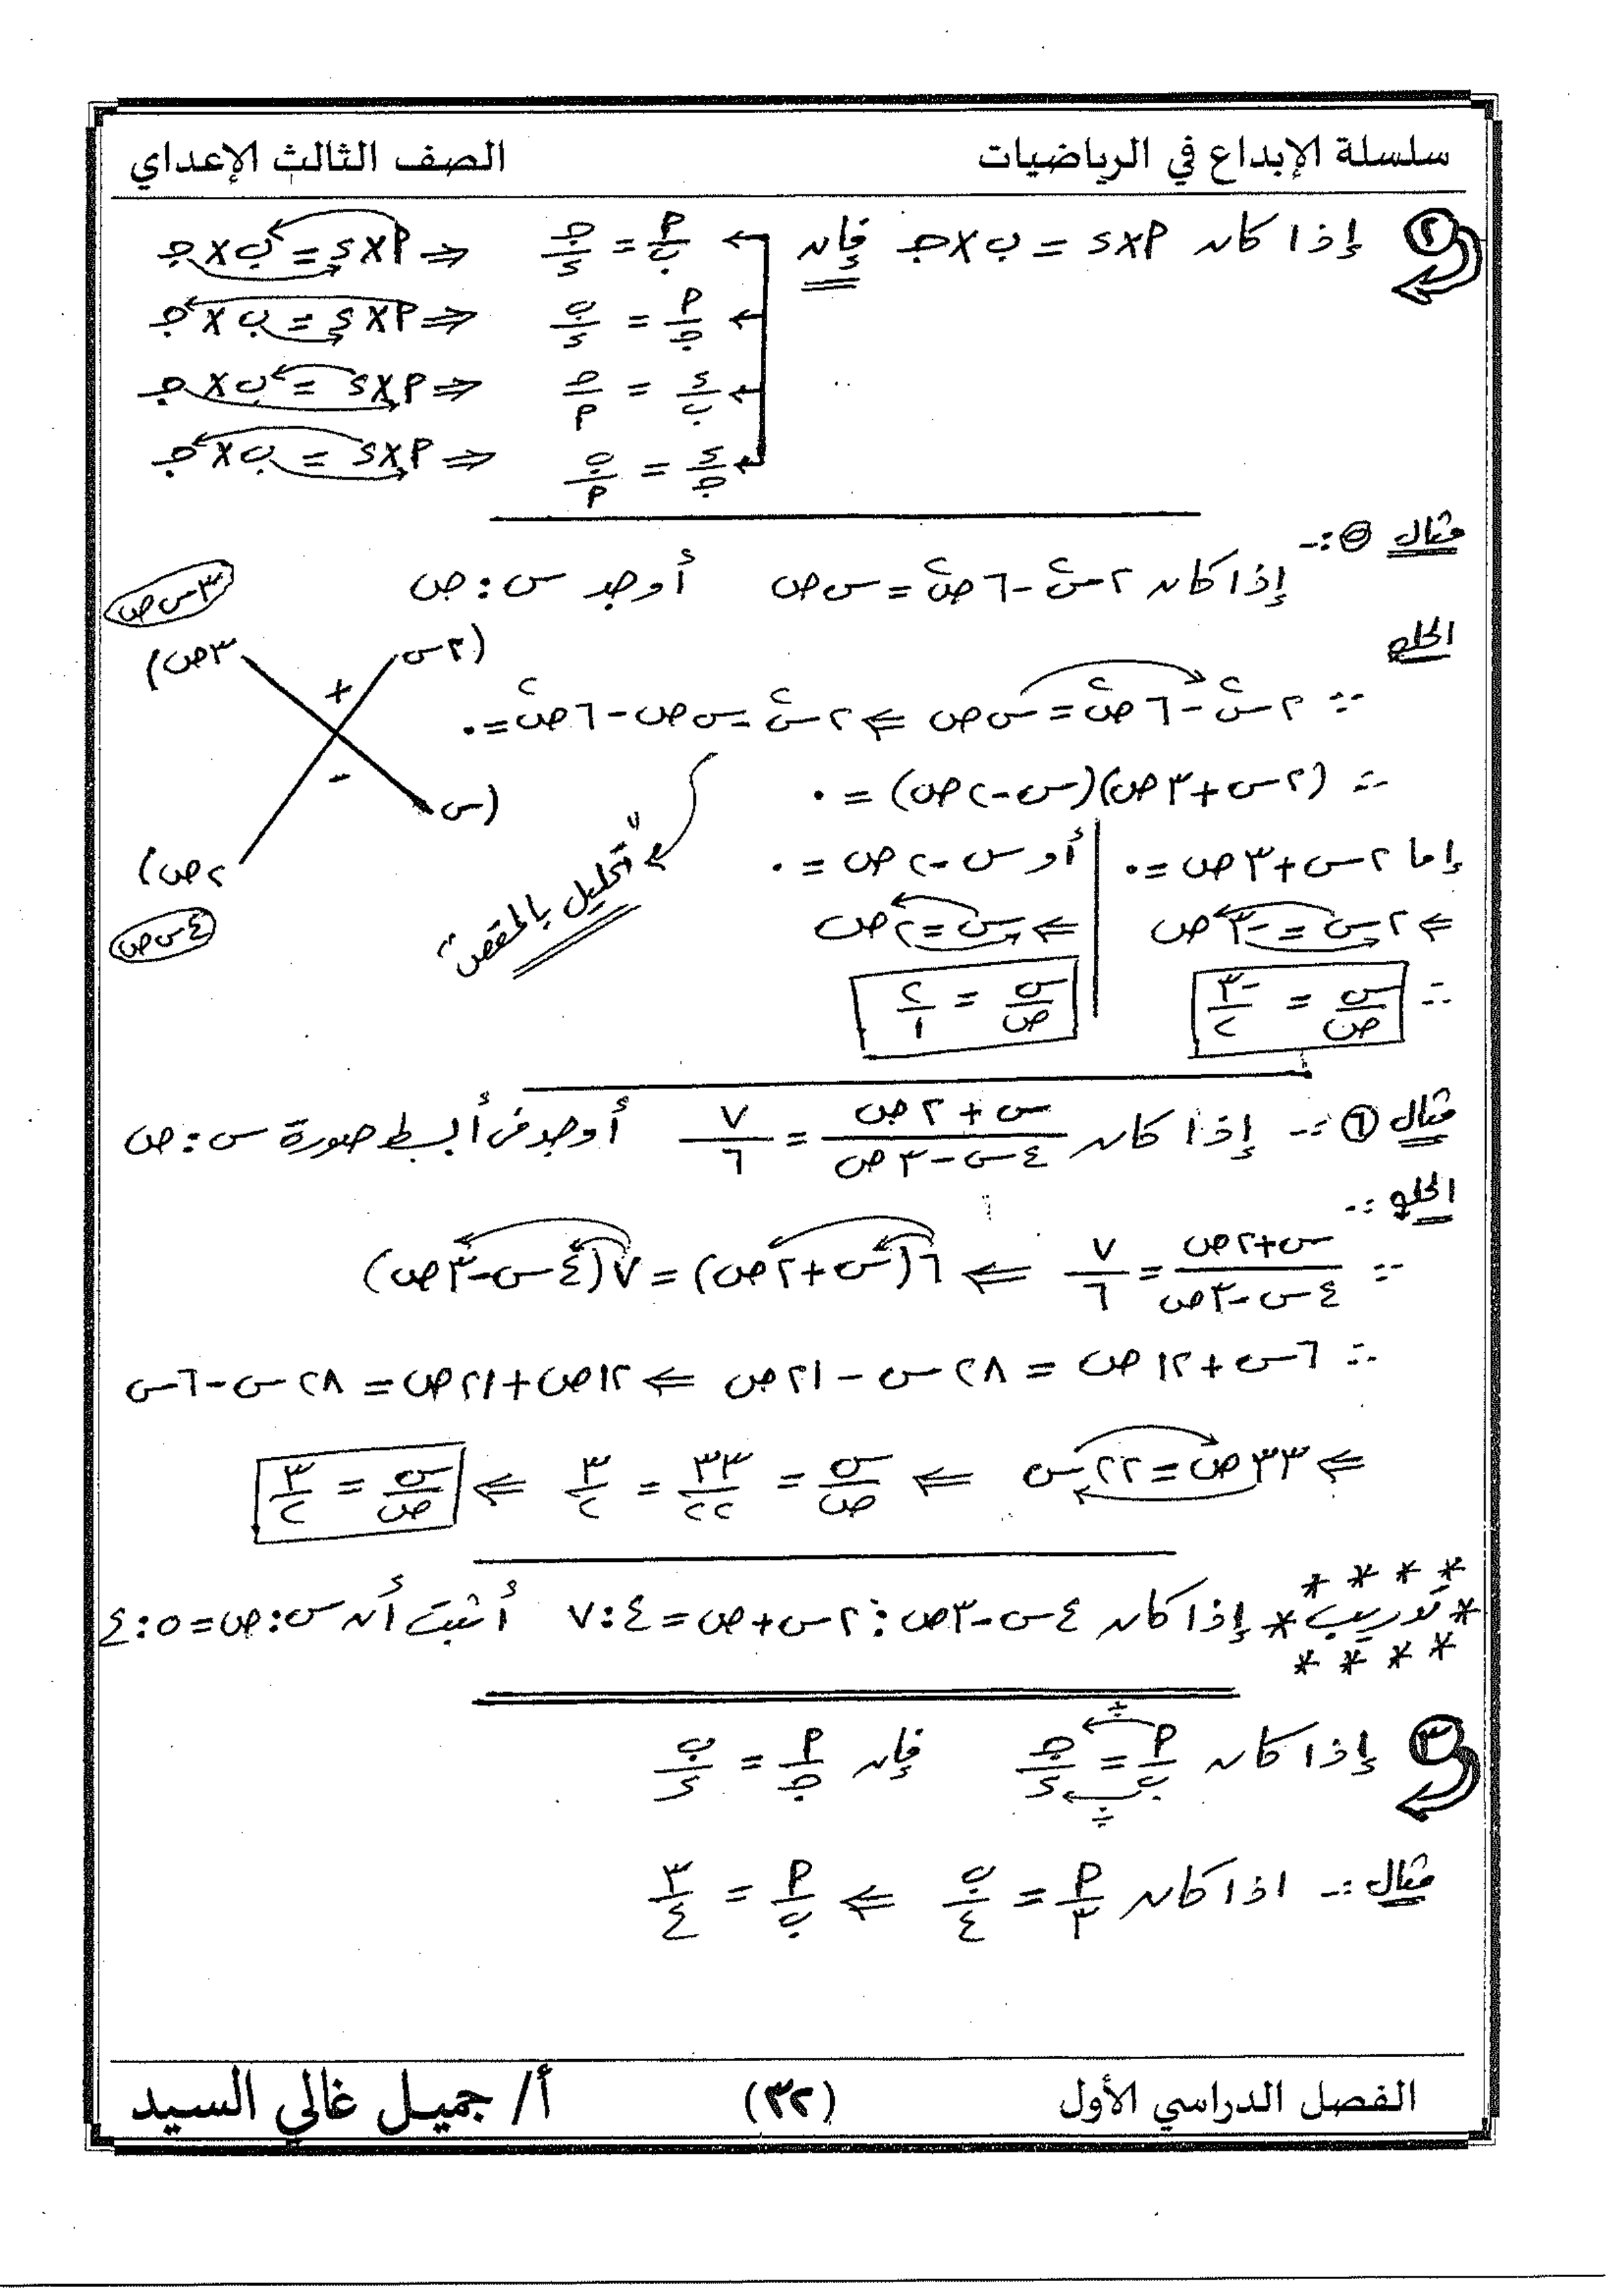 سلسلة الإبداع في الرياضيات الصف الثالث الإعداي
(٢) إذا كان أ×د = ب×جـ فإن ← أ/ب = جـ/د ⇐ أ×د = ب×جـ
← أ/جـ = ب/د ⇐ أ×د = ب×جـ
← د/ب = جـ/أ ⇐ أ×د = ب×جـ
← د/جـ = ب/أ ⇐ أ×د = ب×جـ
مثال ⑤:-
إذا كان ٢س² - ٦ص² = س ص أوجد س : ص
٣ س ص
الحل
(٢س ٣ص)
+
∵ ٢س² - ٦ص² = س ص ⇐ ٢س² - س ص - ٦ص² = ٠
-
∴ (٢س + ٣ص)(س - ٢ص) = ٠
(س ٢ص)
إما ٢س + ٣ص = ٠ أو س - ٢ص = ٠
"تحليل بالمقص"
٤ س ص
⇐ ٢س = -٣ص ⇐ س = ٢ص
∴ س/ص = -٣/٢ س/ص = ٢/١
مثال ⑥:- إذا كان (س + ٢ص)/(٤س - ٣ص) = ٧/٦ أوجد فى أبسط صورة س : ص
الحل :-
∵ (س + ٢ص)/(٤س - ٣ص) = ٧/٦ ⇐ ٦(س + ٢ص) = ٧(٤س - ٣ص)
∴ ٦س + ١٢ص = ٢٨س - ٢١ص ⇐ ١٢ص + ٢١ص = ٢٨س - ٦س
⇐ ٣٣ص = ٢٢س ⇐ س/ص = ٣٣/٢٢ = ٣/٢ ⇐ س/ص = ٣/٢
* * * *
* تدريب * إذا كان ٤س - ٣ص : ٢س + ص = ٤ : ٧ أثبت أن س : ص = ٥ : ٤
* * * *
(٣) إذا كان أ/ب = جـ/د فإن أ/جـ = ب/د
÷
÷
مثال :- اذا كان أ/٣ = ب/٤ ⇐ أ/ب = ٣/٤
الفصل الدراسي الأول (٣٢) أ/ جميل غالي السيد